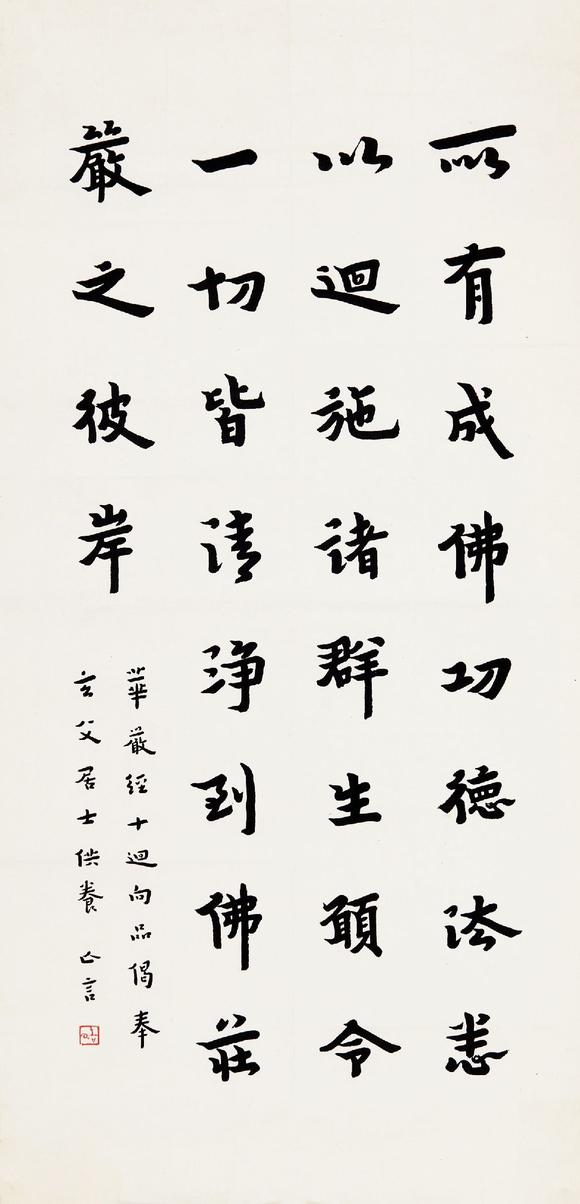 所有成佛功德法悉
以迴施諸群生願令
一切皆清淨到佛莊
嚴之彼岸
華嚴經十迴向品偈奉
玄父居士供養 亡言